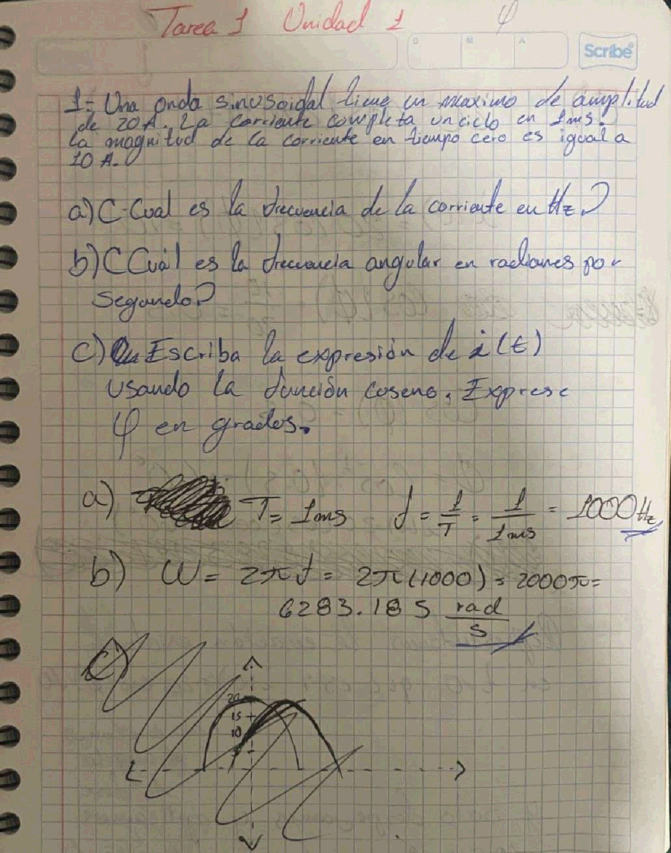 Tarea 1 Unidad 1 φ
D M A
Scribe
1= Una onda sinusoidal tiene un maximo de amplitud
de 20 A. La corriente completa un ciclo en 1ms.
La magnitud de la corriente en tiempo cero es igual a
10 A.
a) C-Cual es la frecuencia de la corriente en Hz?
b) C Cuál es la frecuencia angular en radianes por
segundo?
c) Escriba la expresión de i(t)
usando la función coseno. Exprese
φ en grados.
a) T= 1ms f = 1/T = 1/1ms = 1000 Hz
b) W = 2πf = 2π(1000) = 2000π=
6283.185 rad/s
c)
20
15
10
5